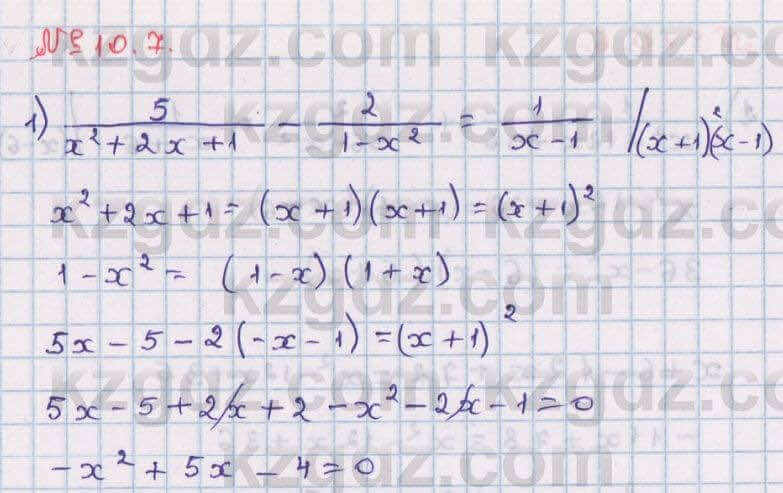 № 10.7.
1) 5/(x²+2x+1) - 2/(1-x²) = 1/(x-1) /(x+1)²(x-1)
x²+2x+1 = (x+1)(x+1) = (x+1)²
1-x² = (1-x)(1+x)
5x-5-2(-x-1) = (x+1)²
5x-5+2x+2-x²-2x-1=0
-x²+5x-4=0
kzgdz.com
kzgdz.com
kzgdz.com
kzgdz.com
kzgdz.com